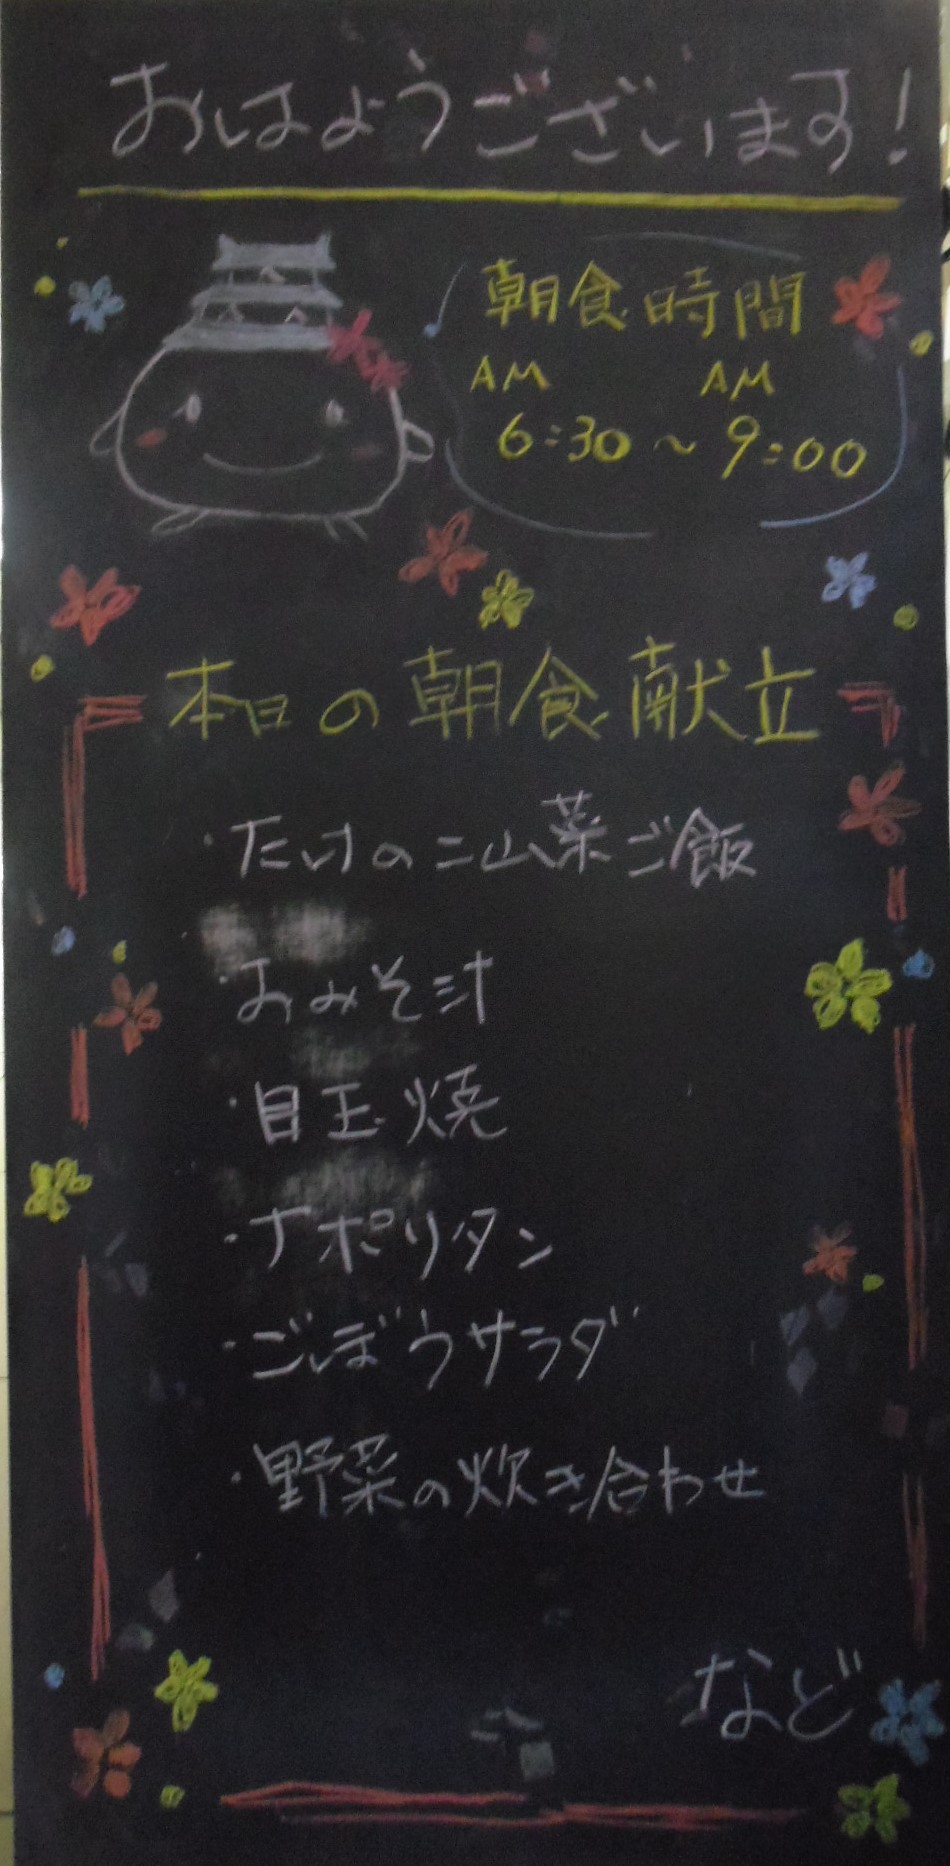 おはようございます!
朝食時間
AM AM
6:30~9:00
本日の朝食献立
・たけのこ山菜ご飯
・おみそ汁
・目玉焼
・ナポリタン
・ごぼうサラダ
・野菜の炊き合わせ
など